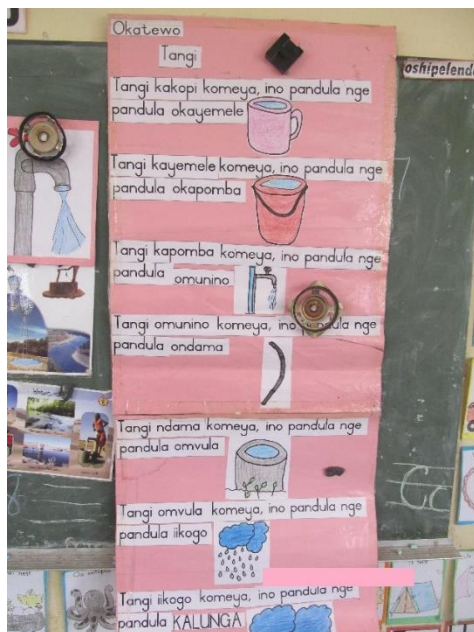 Okatewo
Tangi
Tangi kakopi komeya, ino pandula nge
pandula okayemele
Tangi kayemele komeya, ino pandula nge
pandula okapomba
Tangi kapomba komeya, ino pandula nge
pandula omunino
Tangi omunino komeya, ino pandula nge
pandula ondama
Tangi ndama komeya, ino pandula nge
pandula omvula
Tangi omvula komeya, ino pandula nge
pandula iikogo
Tangi iikogo komeya, ino pandula nge
pandula KALUNGA
oshipelende